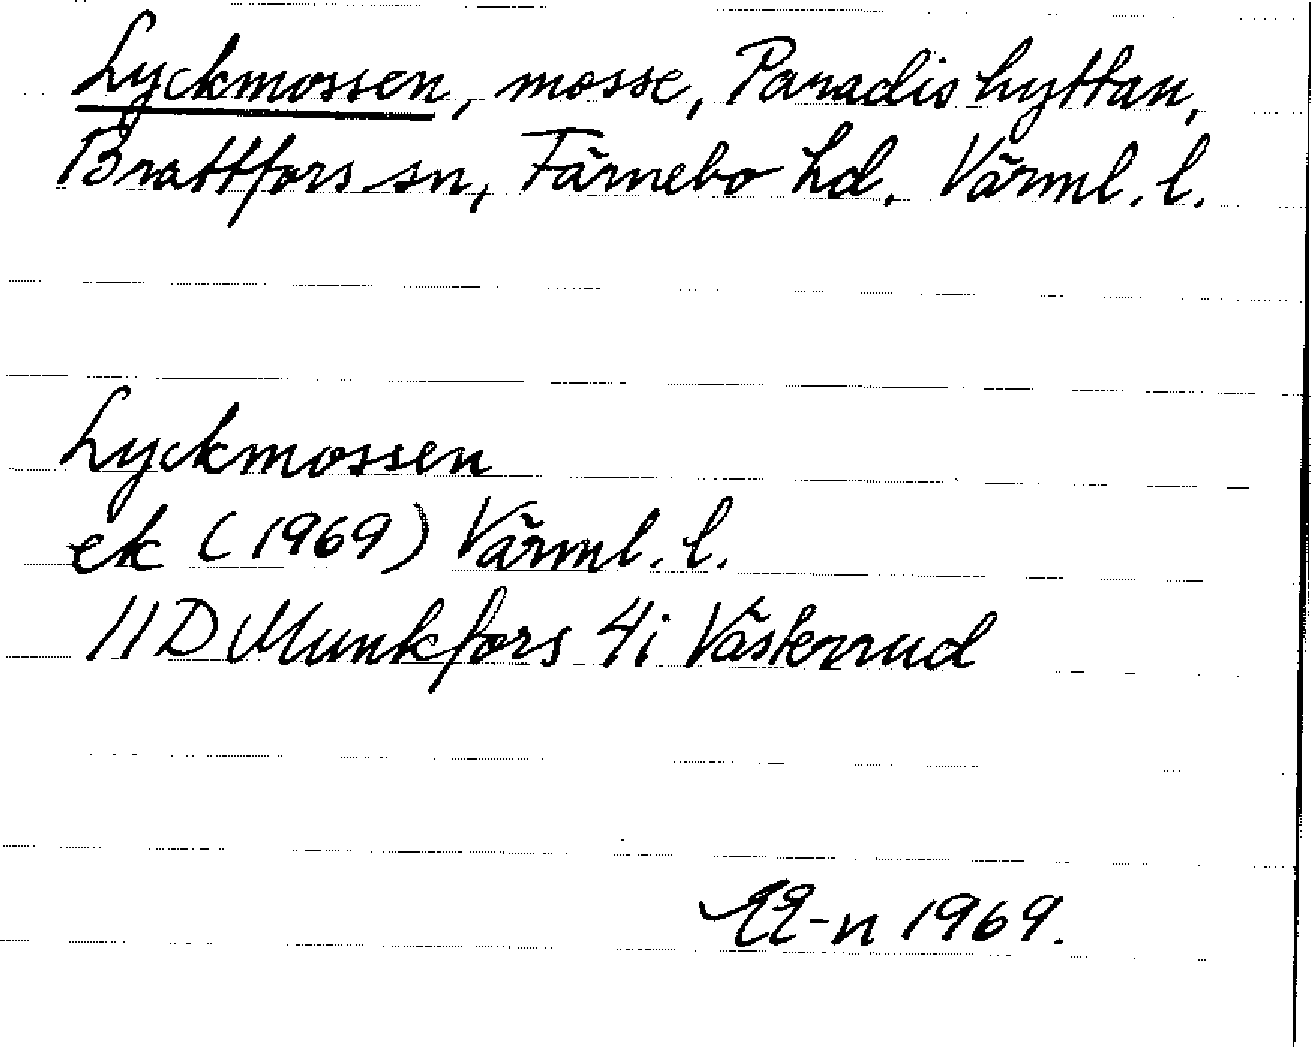 Lyckmossen, mosse, Paradishyttan,
Brattfors sn, Färnebo hd. Värml. l.
Lyckmossen
ek (1969) Värml. l.
11D Munkfors 4i Västerrud
1969.